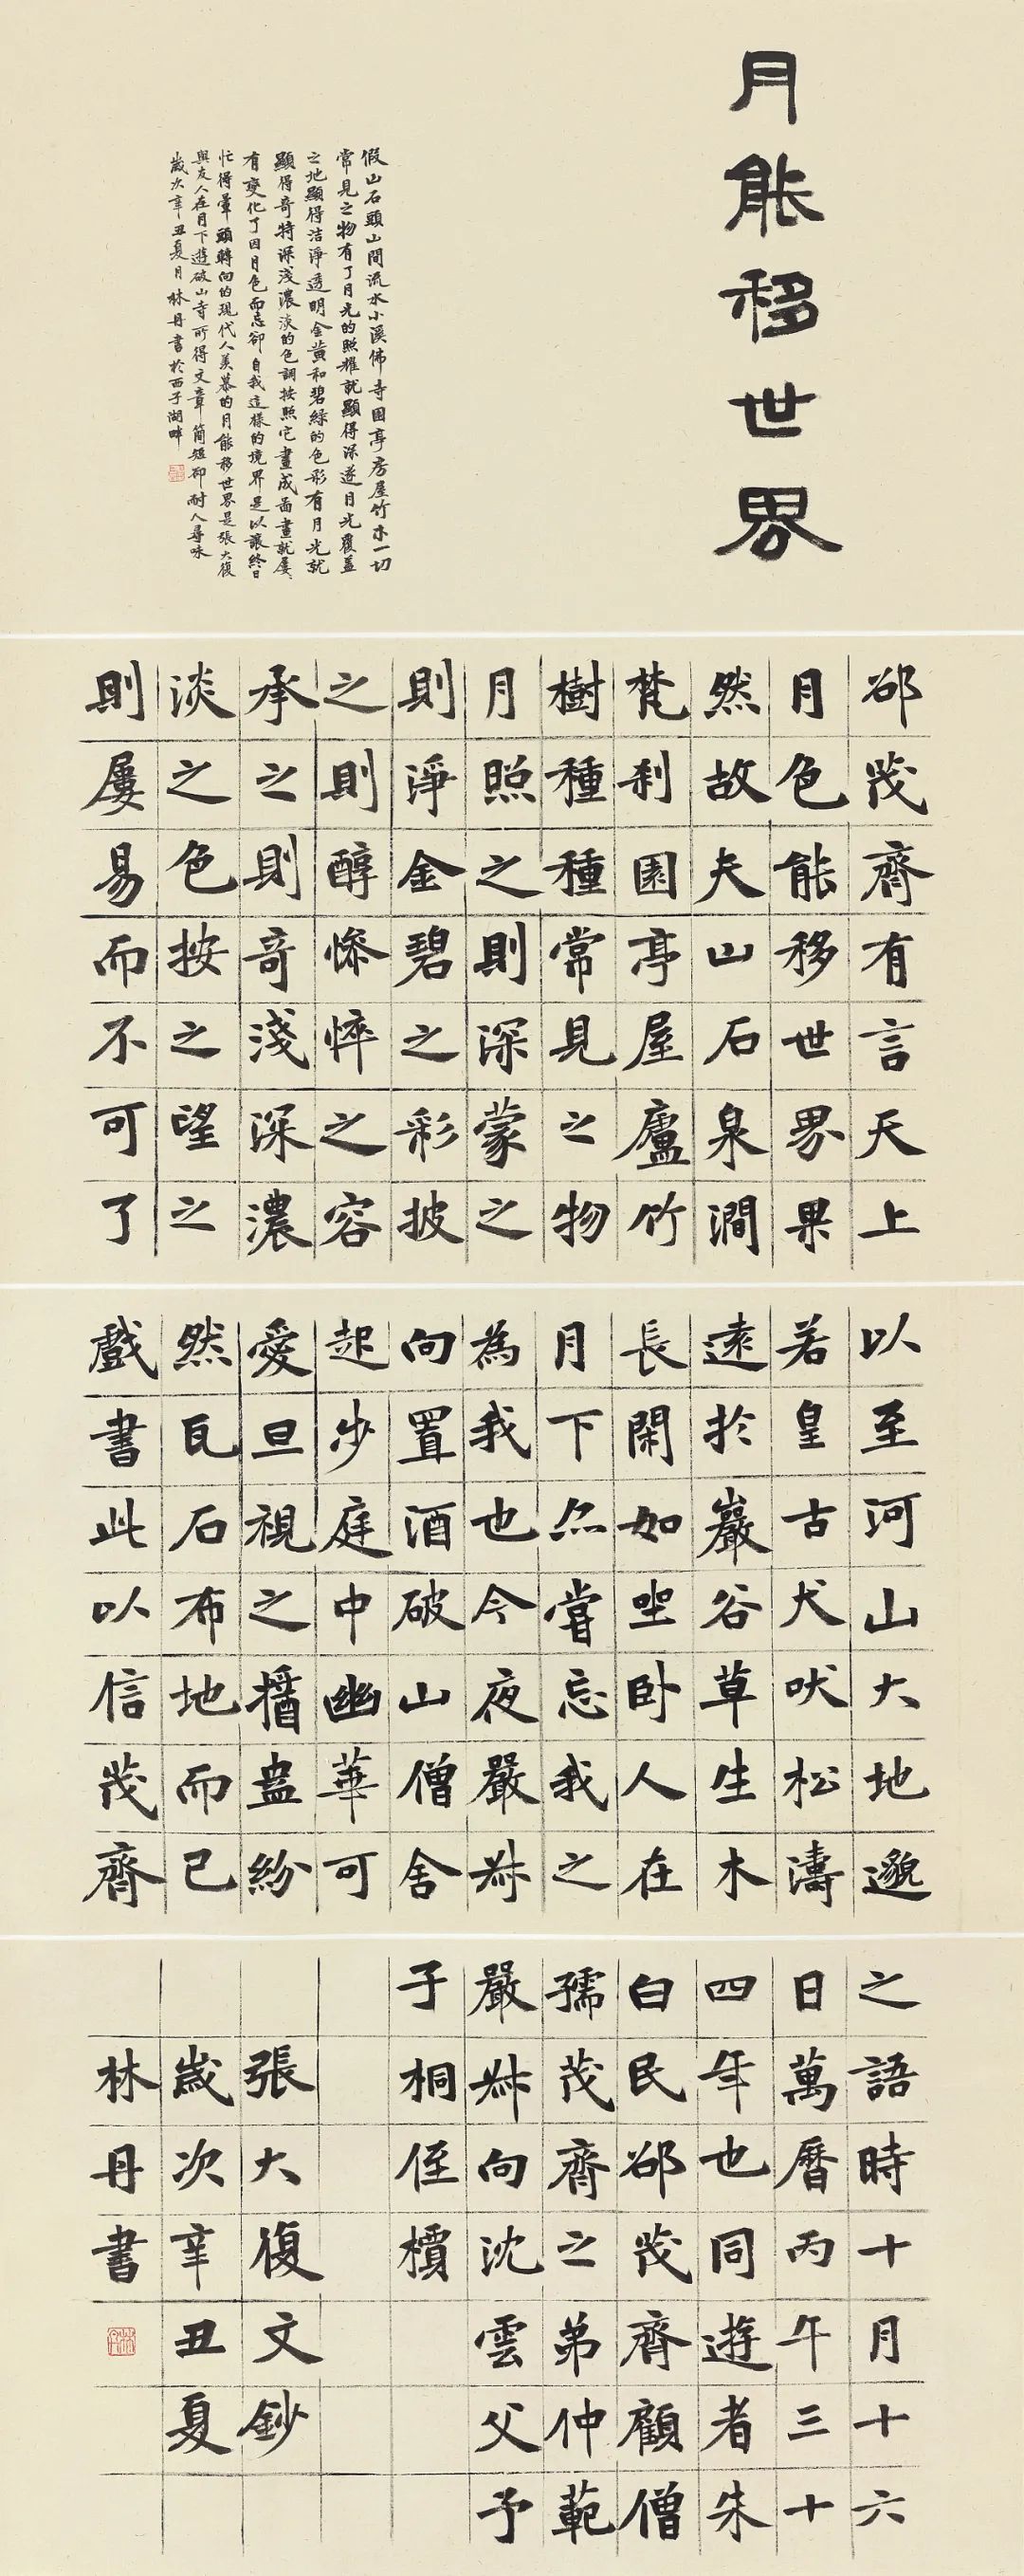 月能移世界
假山石頭山間流水小溪佛寺園亭房屋竹木一切
常見之物有了月光的照耀就顯得深邃月光覆蓋
之地顯得洁淨透明金黃和碧綠的色彩有月光就
顯得奇特深淺濃淡的色調按照它畫成畫畫就屢
有變化了因月色而忘卻自我這樣的境界是以讓終日
忙得暈頭轉向的現代人羨慕的月能移世界是張大復
與友人在月下遊破山寺所得文章簡短卻耐人尋味
歲次辛丑夏月林丹書於西子湖畔
邵茂齊有言天上
月色能移世界果
然故夫山石泉澗
梵刹園亭屋廬竹
樹種種常見之物
月照之則深蒙之
則淨金碧之彩披
之則醇慘悴之容
承之則奇淺深濃
淡之色按之望之
則屢易而不可了
以至河山大地邈
若皇古犬吠松濤
遠於巖谷草生木
長閑如坐臥人在
月下亦嘗忘我之
為我也今夜嚴叔
向置酒破山僧舍
起步庭中幽華可
愛旦視之播盎紛
然瓦石布地而已
戲書此以信茂齊
之語時十月十六
日萬曆丙午三十
四年也同遊者朱
白民邵茂齊顧僧
孺茂齊之弟仲範
嚴叔向沈雲父予
子桐侄櫝
張大復文鈔
歲次辛丑夏
林丹書